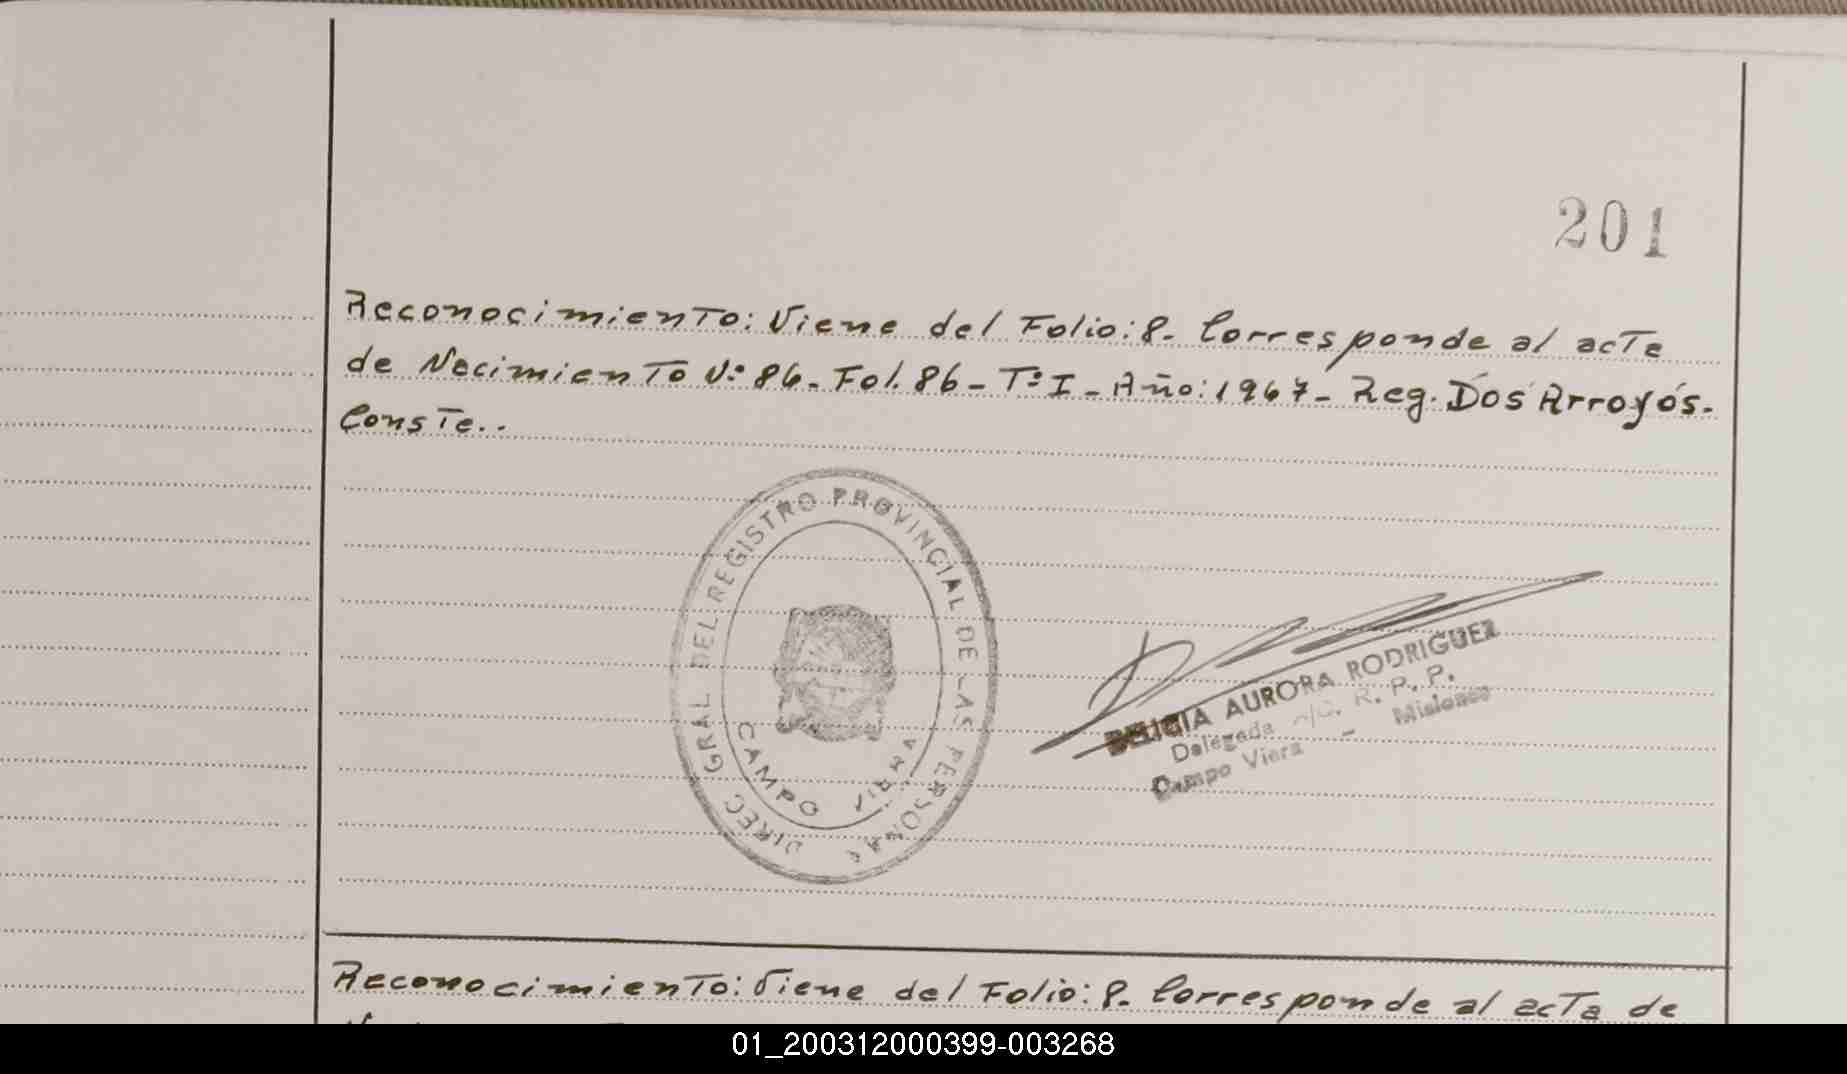 201
Reconocimiento: Viene del Folio: 8. Corresponde al acta
de Nacimiento Nº 86. Fol. 86 - Tº I - Año: 1967 - Reg. Dos Arroyos.
Conste..
DIREC GRAL DEL REGISTRO PROVINCIAL DE LAS PERSONAS
CAMPO VIERA
DELICIA AURORA RODRIGUEZ
Delegada R. P. P.
Campo Viera - Misiones
Reconocimiento: Viene del Folio: 8. Corresponde al acta de
01_200312000399-003268